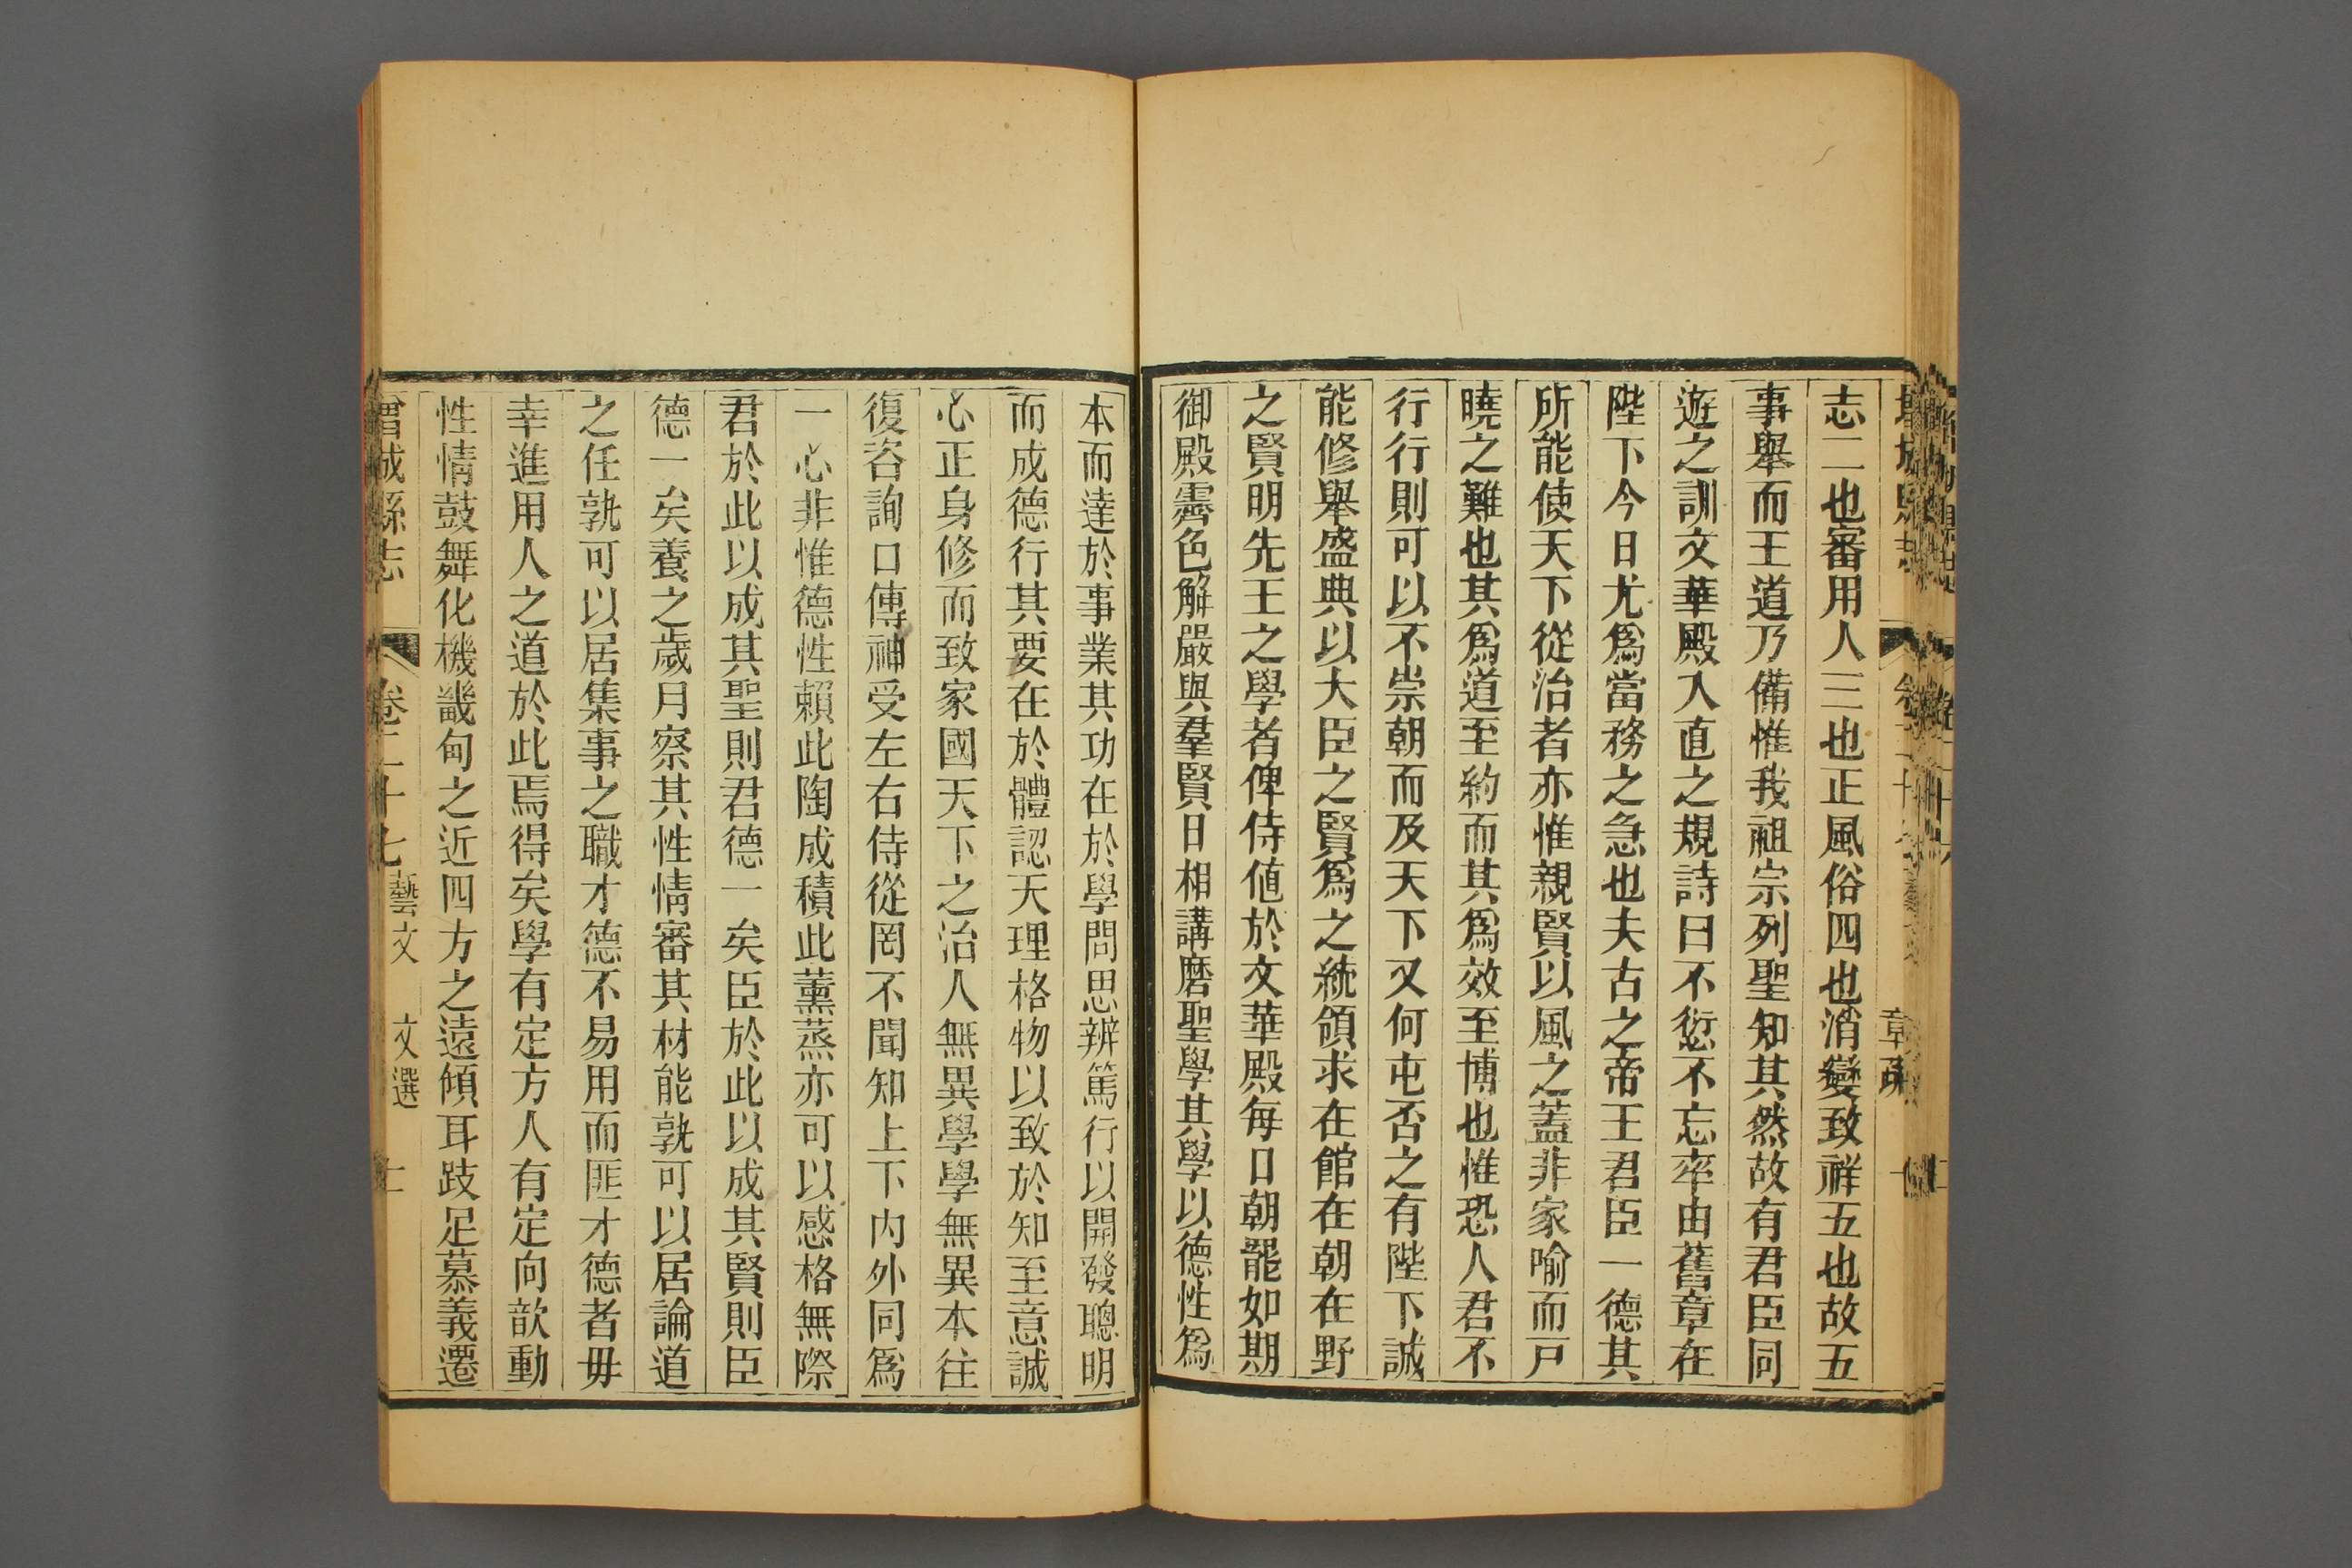 志二也審用人三也正風俗四也消變致祥五也故五
事舉而王道乃備惟我祖宗列聖知其然故有君臣同
遊之訓文華殿入直之規詩曰不愆不忘率由舊章在
陛下今日尤爲當務之急也夫古之帝王君臣一德其
所能使天下從治者亦惟親賢以風之蓋非家喻而戸
曉之難也其爲道至約而其爲效至博也惟恐人君不
行行則可以不崇朝而及天下又何屯否之有陛下誠
能修舉盛典以大臣之賢爲之統領求在館在朝在野
之賢明先王之學者俾侍值於文華殿每日朝罷如期
御殿霽色解嚴與羣賢日相講磨聖學其學以德性爲
本而達於事業其功在於學問思辨篤行以開發聰明
而成德行其要在於體認天理格物以致於知至意誠
心正身修而致家國天下之治人無異學學無異本往
復咨詢口傳神受左右侍從罔不聞知上下内外同爲
一心非惟德性賴此陶成積此薰蒸亦可以感格無際
君於此以成其聖則君德一矣臣於此以成其賢則臣
德一矣養之歲月察其性情審其材能孰可以居論道
之任孰可以居集事之職才德不易用而匪才德者毋
幸進用人之道於此焉得矣學有定方人有定向歆動
性情鼓舞化機畿甸之近四方之遠傾耳跂足慕義遷
增城縣志 卷二十七 藝文 文選